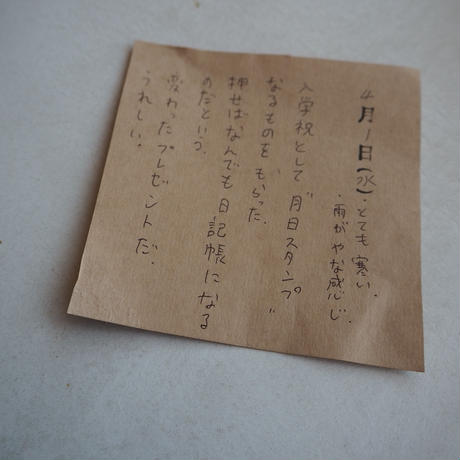 4月1日(水)・とても寒い.
・雨がやな感じ.
入学祝として"月日スタンプ"
なるものをもらった.
押せばなんでも日記帳になる
のだという.
変わったプレゼントだ.
うれしい.